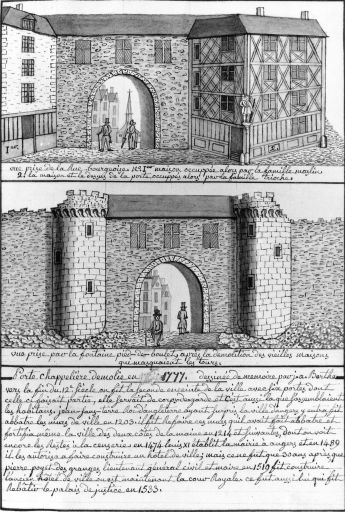 1er
vue prise de la Rue bourgeoise No 1er maison occupée alors par la famille moulin
2e la maison et le dessus de la porte occupés alors par la famille Trioche.
vue prise par la fontaine pied-de-boulet, après la démolition des vieilles maisons
qui masquaient les tours.
Porte Chappelière démolie en 1777. dessinée de mémoire par j. a. Berthe
vers la fin du 12e siècle on fit la seconde enceinte de la ville avec six portes dont
celle ci faisait partie, elle servait de corps de garde et c'est aussi là que s'assemblaient
les habitans, jean-sans-terre Roi d'angleterre ayant surpris la ville d'angers y entra fit
abbatre les murs de ville en 1203. il fit Reparer ces murs qu'il avait fait abbatre et
fortifia même la ville des deux côtés de la maine en 1214 et suivantes, dont on voit
encore les vestiges à la censerie en 1474 louis XI établit la mairie a angers et en 1489
il les autorisa a faire construire un hôtel de ville; mais ce ne fut que 30 ans après que
pierre poyet des granges lieutenant général civil et maire en 1510 fit construire
l'ancien hôtel de ville ou est maintenant la cour Royale; ce fut aussi lui qui fit
Rebatir le palais de justice en 1533.